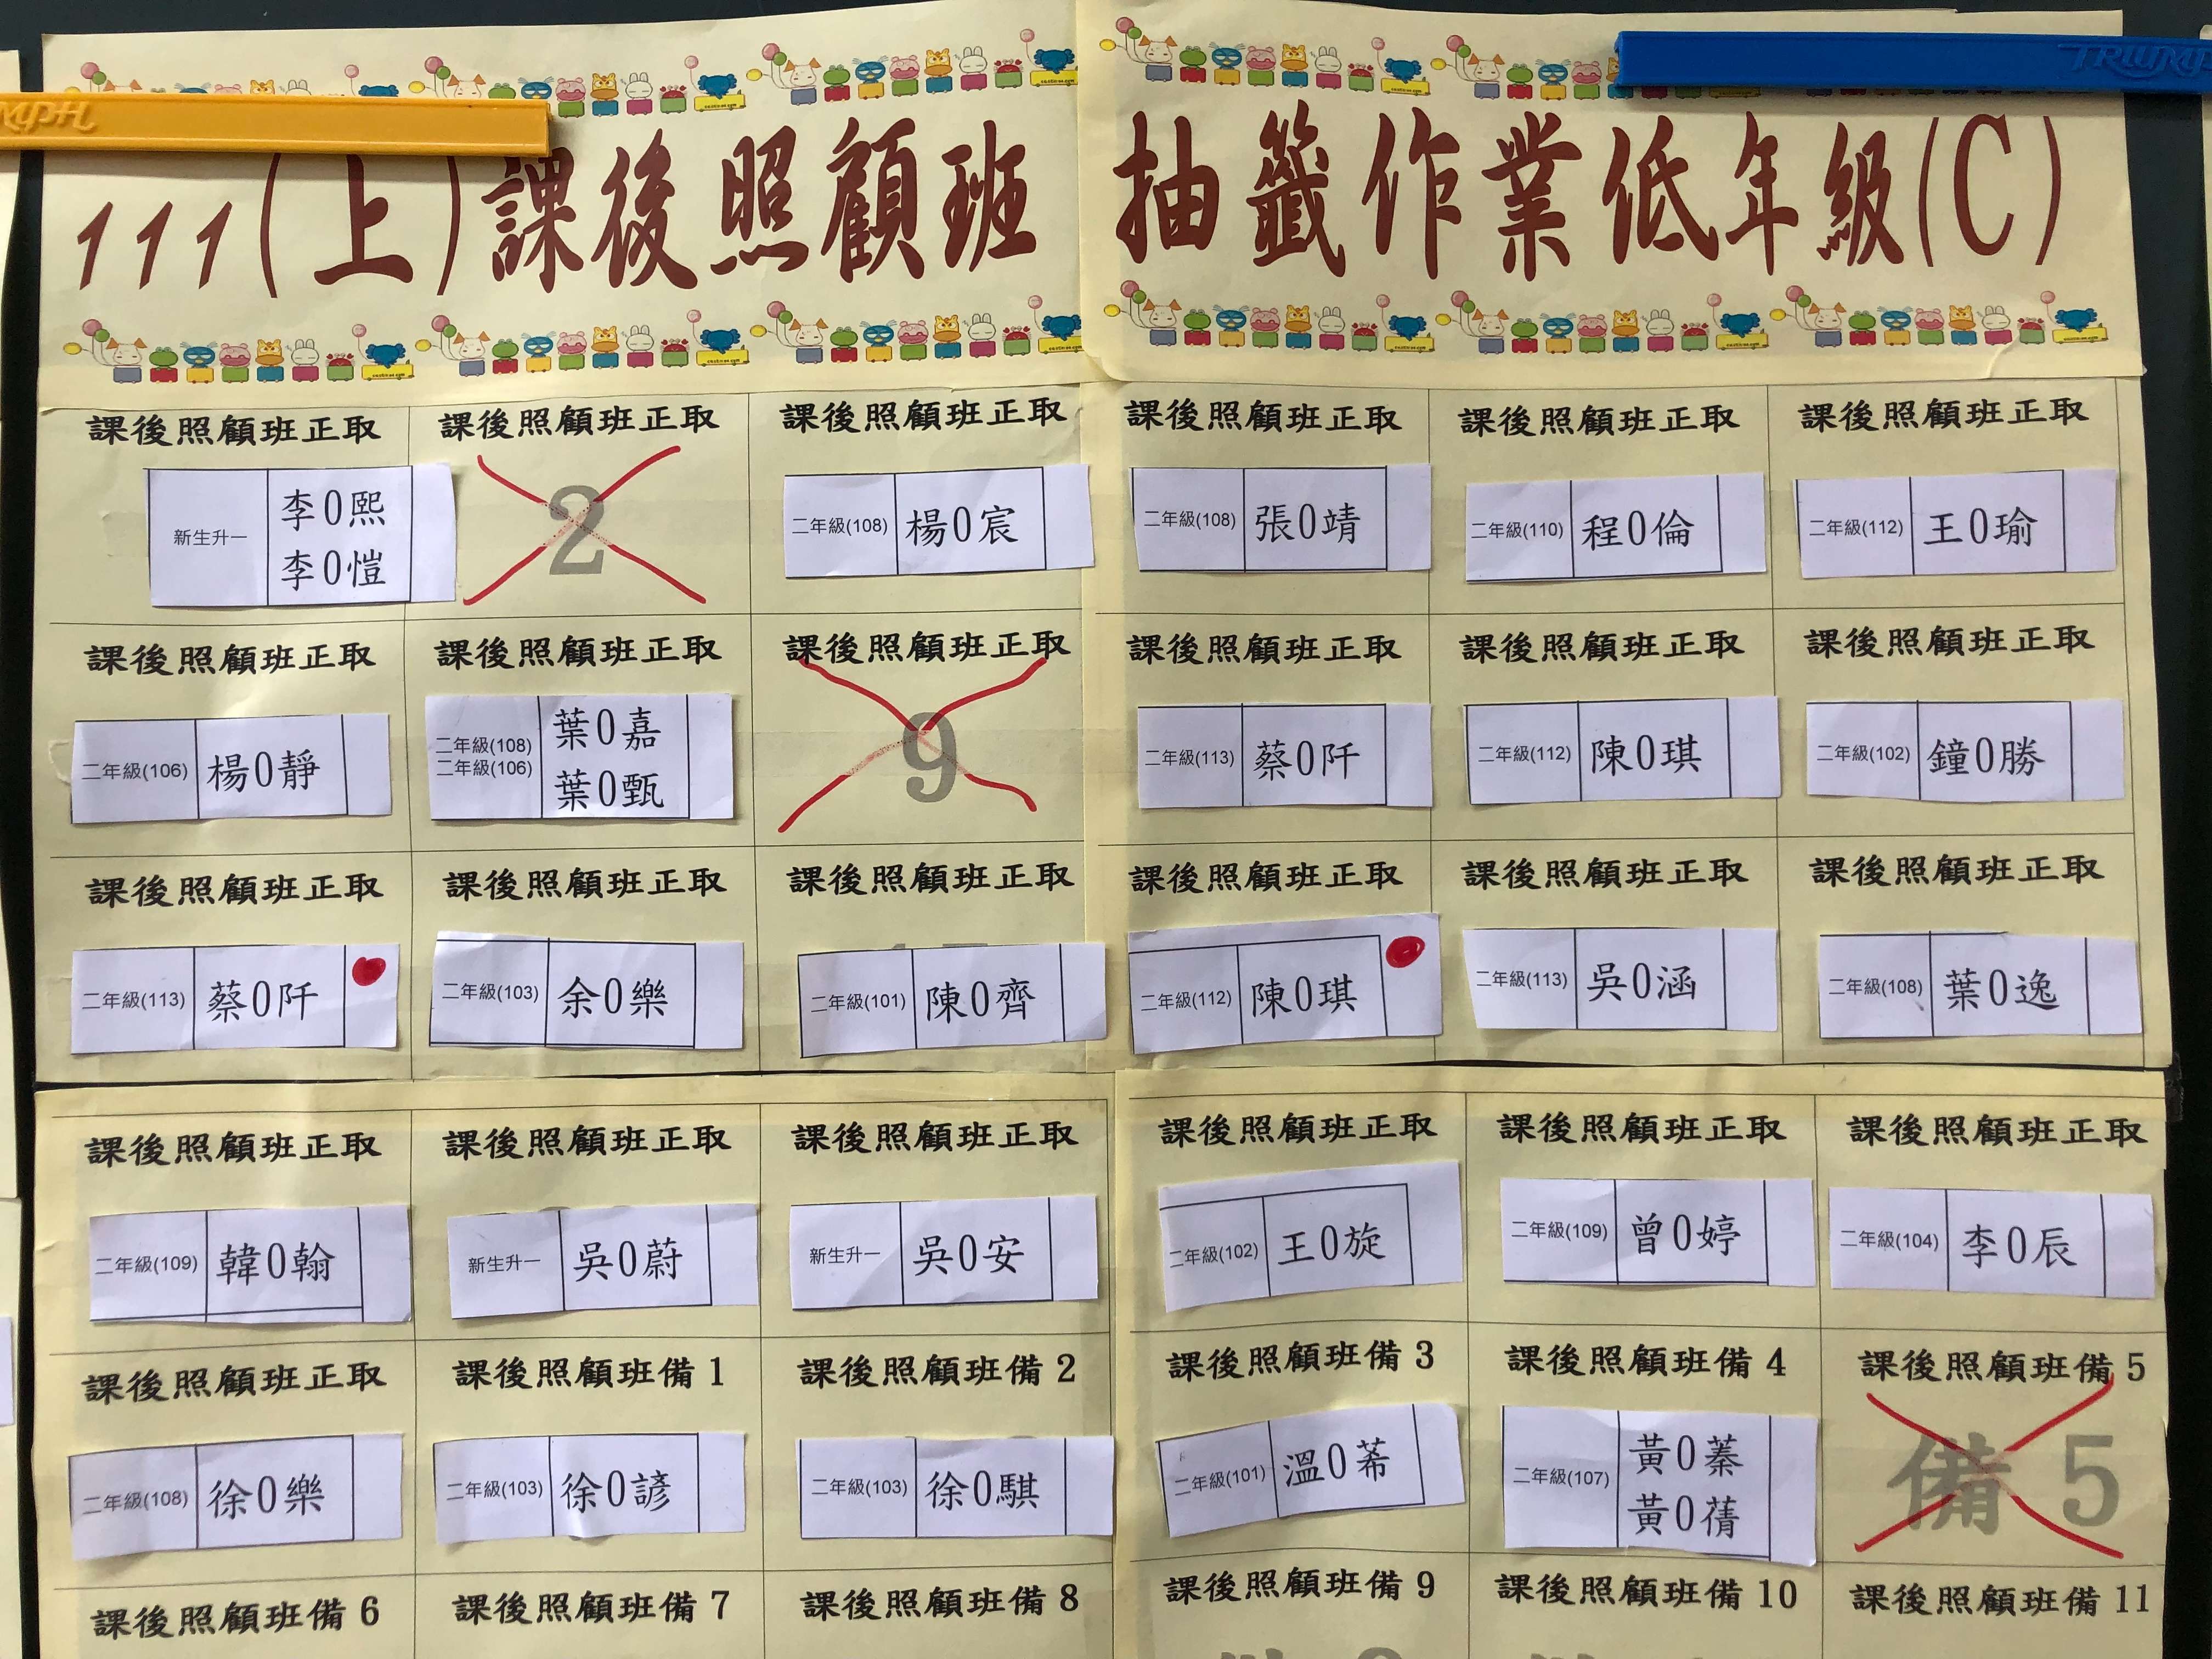 TRIUMPH
111(上)課後照顧班 抽籤作業低年級(C)
課後照顧班正取 課後照顧班正取 課後照顧班正取 課後照顧班正取 課後照顧班正取 課後照顧班正取
新生升一 李0熙
李0愷
2
二年級(108) 楊0宸
二年級(108) 張0靖
二年級(110) 程0倫
二年級(112) 王0瑜
課後照顧班正取 課後照顧班正取 課後照顧班正取 課後照顧班正取 課後照顧班正取 課後照顧班正取
二年級(106) 楊0靜
二年級(108) 葉0嘉
二年級(106) 葉0甄
9
二年級(113) 蔡0阡
二年級(112) 陳0琪
二年級(102) 鐘0勝
課後照顧班正取 課後照顧班正取 課後照顧班正取 課後照顧班正取 課後照顧班正取 課後照顧班正取
二年級(113) 蔡0阡
二年級(103) 余0樂
二年級(101) 陳0齊
二年級(112) 陳0琪
二年級(113) 吳0涵
二年級(108) 葉0逸
課後照顧班正取 課後照顧班正取 課後照顧班正取 課後照顧班正取 課後照顧班正取 課後照顧班正取
二年級(109) 韓0翰
新生升一 吳0蔚
新生升一 吳0安
二年級(102) 王0旋
二年級(109) 曾0婷
二年級(104) 李0辰
課後照顧班正取 課後照顧班備1 課後照顧班備2 課後照顧班備3 課後照顧班備4 課後照顧班備5
二年級(108) 徐0樂
二年級(103) 徐0諺
二年級(103) 徐0騏
二年級(101) 溫0莃
二年級(107) 黃0蓁
黃0蒨
備 5
課後照顧班備6 課後照顧班備7 課後照顧班備8 課後照顧班備9 課後照顧班備10 課後照顧班備11